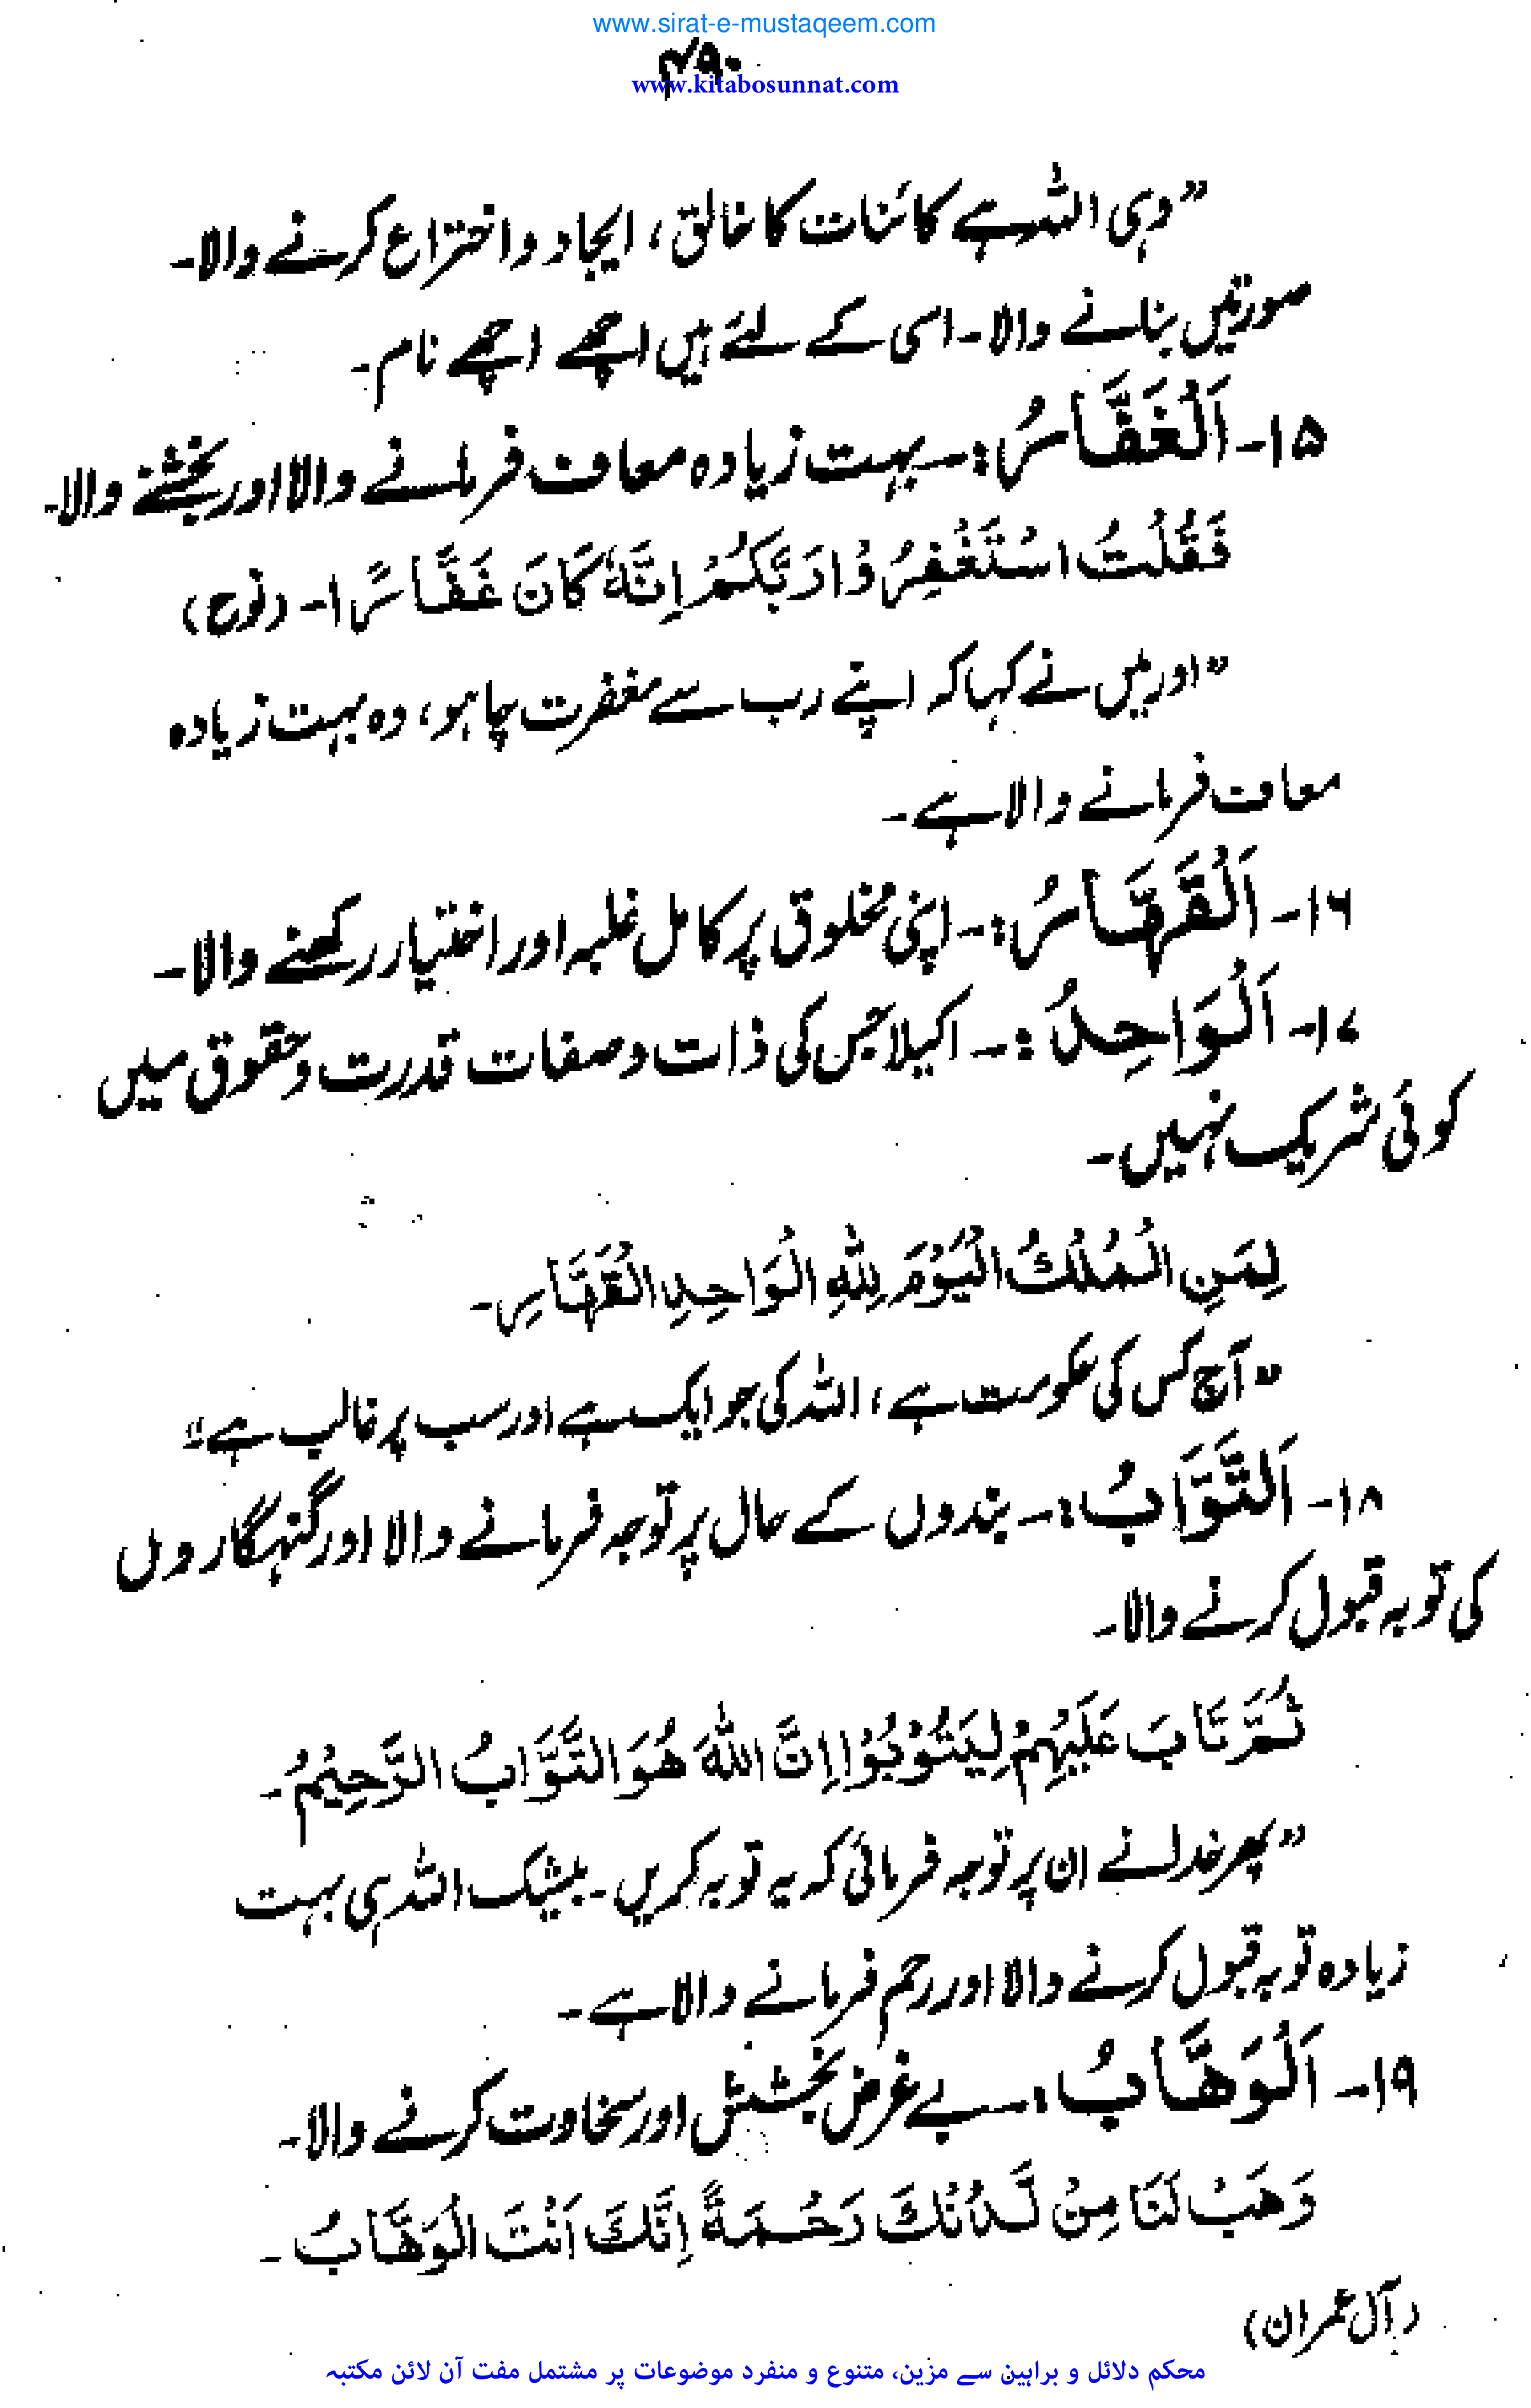 www.sirat-e-mustaqeem.com
۴۹۰
www.kitabosunnat.com
”وہی اللہ ہے کائنات کا خالق، ایجاد و اختراع کرنے والا۔
صورتیں بنانے والا۔ اسی کے لئے ہیں اچھے اچھے نام۔
۱۵۔ اَلْغَفَّارُ:۔ بہت زیادہ معاف فرمانے والا اور بخشنے والا۔
فَقُلْتُ اسْتَغْفِرُوْا رَبَّكُمْ اِنَّهٗ كَانَ غَفَّارًا۔ (نوح)
”اور میں نے کہا کہ اپنے رب سے مغفرت چاہو، وہ بہت زیادہ
معاف فرمانے والا ہے۔
۱۶۔ اَلْقَهَّارُ:۔ اپنی مخلوق پر کامل غلبہ اور اختیار رکھنے والا۔
۱۷۔ اَلْوَاحِدُ:۔ اکیلا جس کی ذات و صفات قدرت و حقوق میں
کوئی شریک نہیں۔
لِمَنِ الْمُلْكُ الْيَوْمَ لِلّٰهِ الْوَاحِدِ الْقَهَّارِ۔
”آج کس کی حکومت ہے، اللہ کی جو ایک ہے اور سب پر غالب ہے“
۱۸۔ اَلتَّوَّابُ:۔ بندوں کے حال پر توجہ فرمانے والا اور گنہگاروں
کی توبہ قبول کرنے والا۔
ثُمَّ تَابَ عَلَيْهِمْ لِيَتُوْبُوْا اِنَّ اللّٰهَ هُوَ التَّوَّابُ الرَّحِيْمُ۔
”پھر خدا نے ان پر توجہ فرمائی کہ یہ توبہ کریں۔ بیشک اللہ ہی بہت
زیادہ توبہ قبول کرنے والا اور رحم فرمانے والا ہے۔
۱۹۔ اَلْوَهَّابُ:۔ بے غرض بخشش اور سخاوت کرنے والا۔
وَهَبْ لَنَا مِنْ لَّدُنْكَ رَحْمَةً اِنَّكَ اَنْتَ الْوَهَّابُ۔
(آل عمران)
محکم دلائل و براہین سے مزین، متنوع و منفرد موضوعات پر مشتمل مفت آن لائن مکتبہ